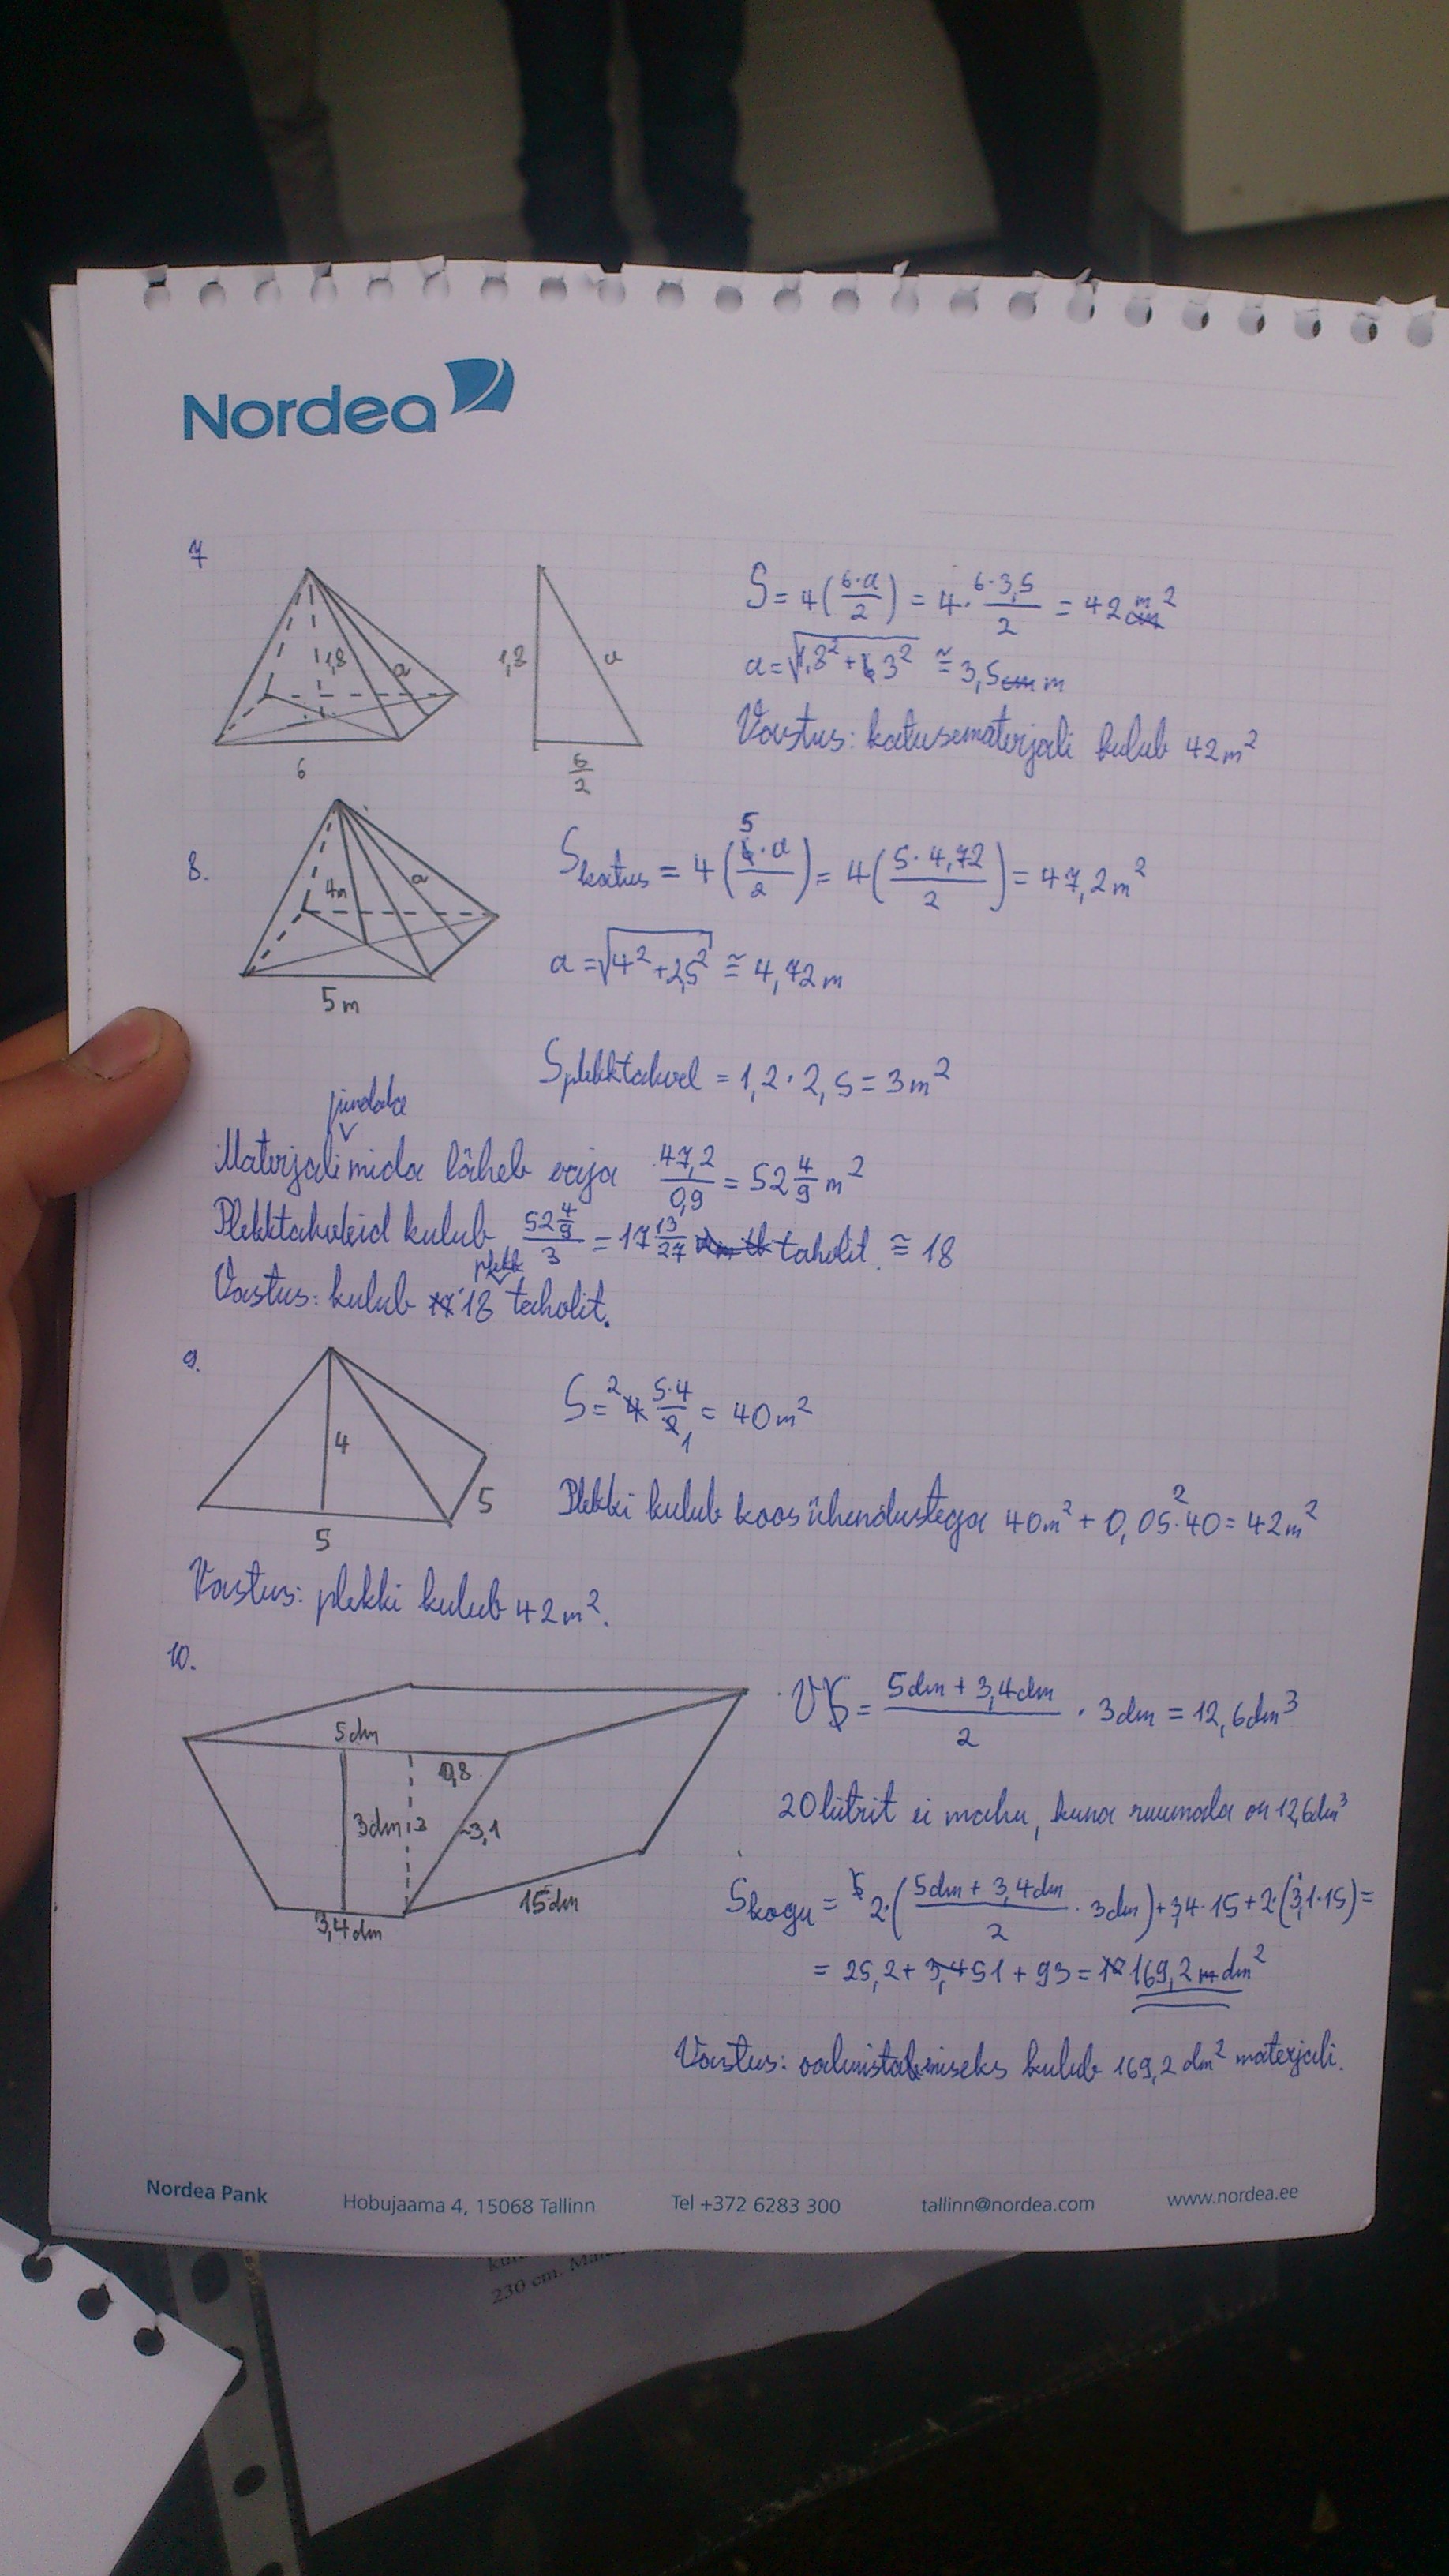 Nordea
7
1,8 a
6
1,8 a
6/2
S = 4(6·a/2) = 4· 6·3,5/2 = 42 m²
a = √1,8² + 3² ≅ 3,5 m
Vastus: katusematerjali kulub 42m²
8.
4m a
5m
Skatus = 4(5·a/2) = 4(5·4,72/2) = 47,2m²
a = √4² + 2,5² ≅ 4,72m
Splekktahvel = 1,2 · 2,5 = 3m²
pindala
Materjali mida läheb vaja 47,2/0,9 = 52 4/9 m²
Plekktahvleid kulub 52 4/9 / 3 = 17 13/27 tahvlit ≅ 18
plekk
Vastus: kulub 18 tahvlit.
9.
4
5
5
S = ²4 5·4/2 ₁ = 40m²
Plekki kulub koos ühendustega 40m² + 0,05·40 = 42m²
Vastus: plekki kulub 42m².
10.
5dm
0,8
3dm 3 ~3,1
15dm
3,4dm
V = 5dm + 3,4dm/2 · 3dm = 12,6dm³
20 liitrit ei mahu, kuna ruumala on 12,6dm³
Skogu = 2·(5dm + 3,4dm/2 · 3dm) + 3,4·15 + 2·(3,1·15) =
= 25,2 + 51 + 93 = 169,2 dm²
Vastus: valmistamiseks kulub 169,2 dm² materjali.
Nordea Pank Hobujaama 4, 15068 Tallinn Tel +372 6283 300 tallinn@nordea.com www.nordea.ee
230 cm.